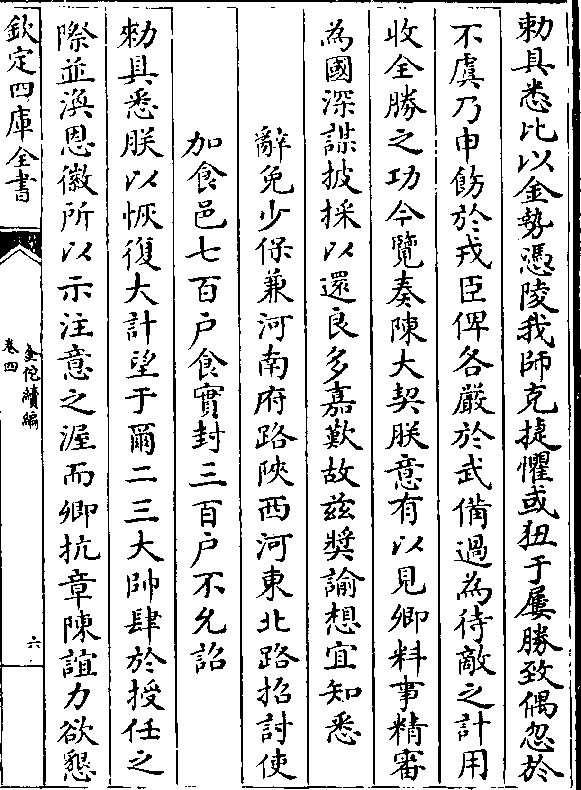 勅具悉比以金勢憑陵我師克捷懼或狃于屢勝致偶忽於
不虞乃申飭於戎臣俾各嚴於武備過為待敵之計用
收全勝之功今覽奏陳大契朕意有以見卿料事精審
為國深謀披採以還良多嘉歎故兹奬諭想宜知悉
辭免少保兼河南府路陝西河東北路招討使
加食邑七百户食實封三百户不允詔
勅具悉朕以恢復大計望于爾二三大帥肆於授任之
際並渙恩徽所以示注意之渥而卿抗章陳誼力欲懇
欽定四庫全書
金佗續編
卷四
六